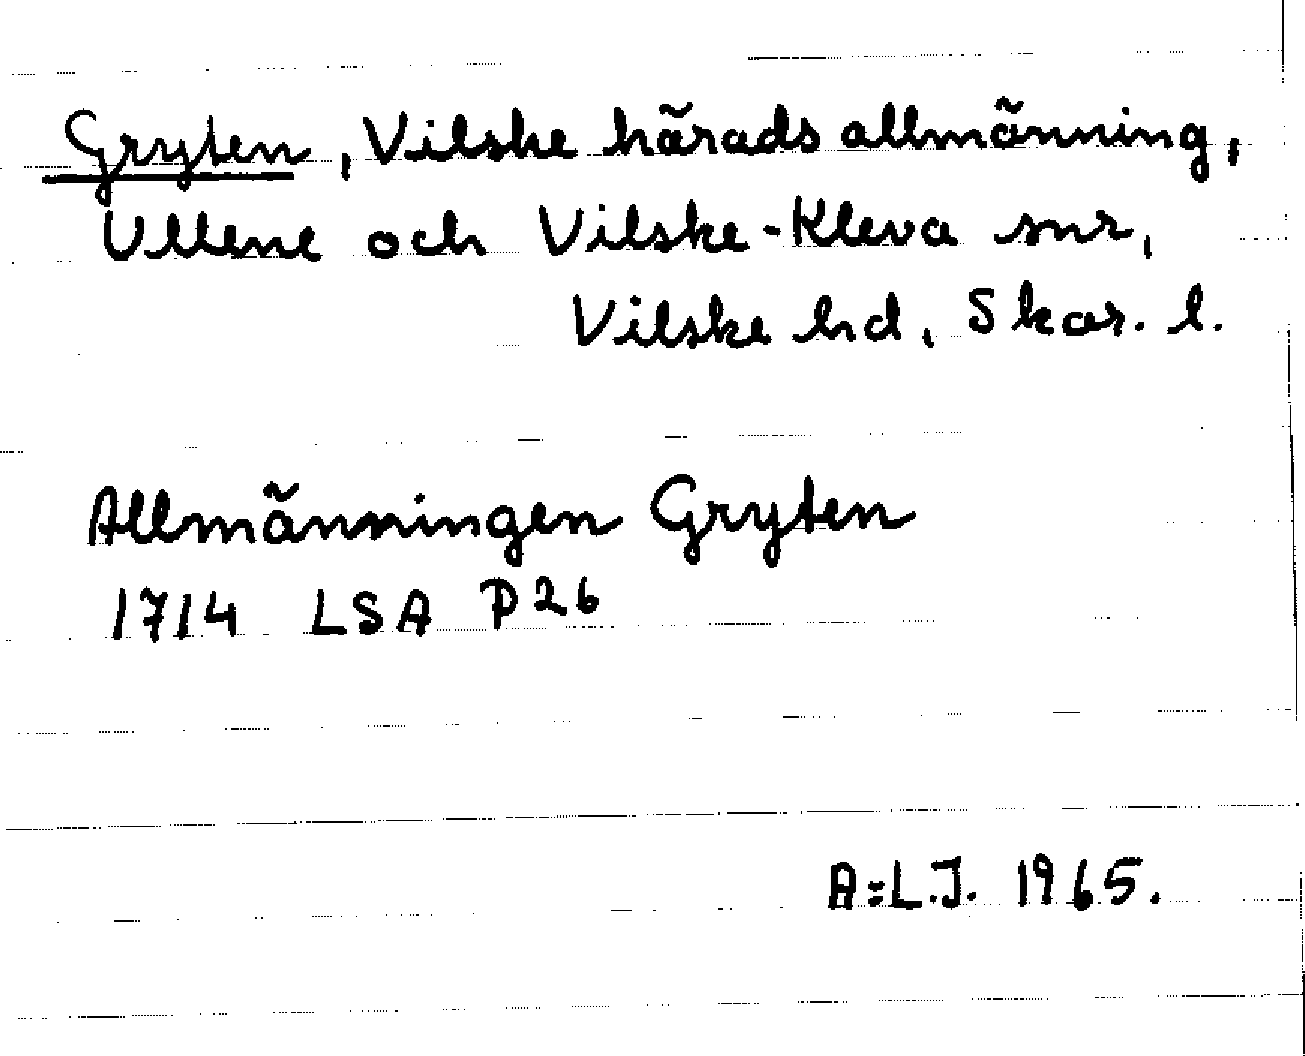 Gryten, Vilske härads allmänning,
Ullene och Vilske-Kleva snr,
Vilske hd, Skar. l.
Allmänningen Gryten
1714 LSA P26
A:L.J. 1965.